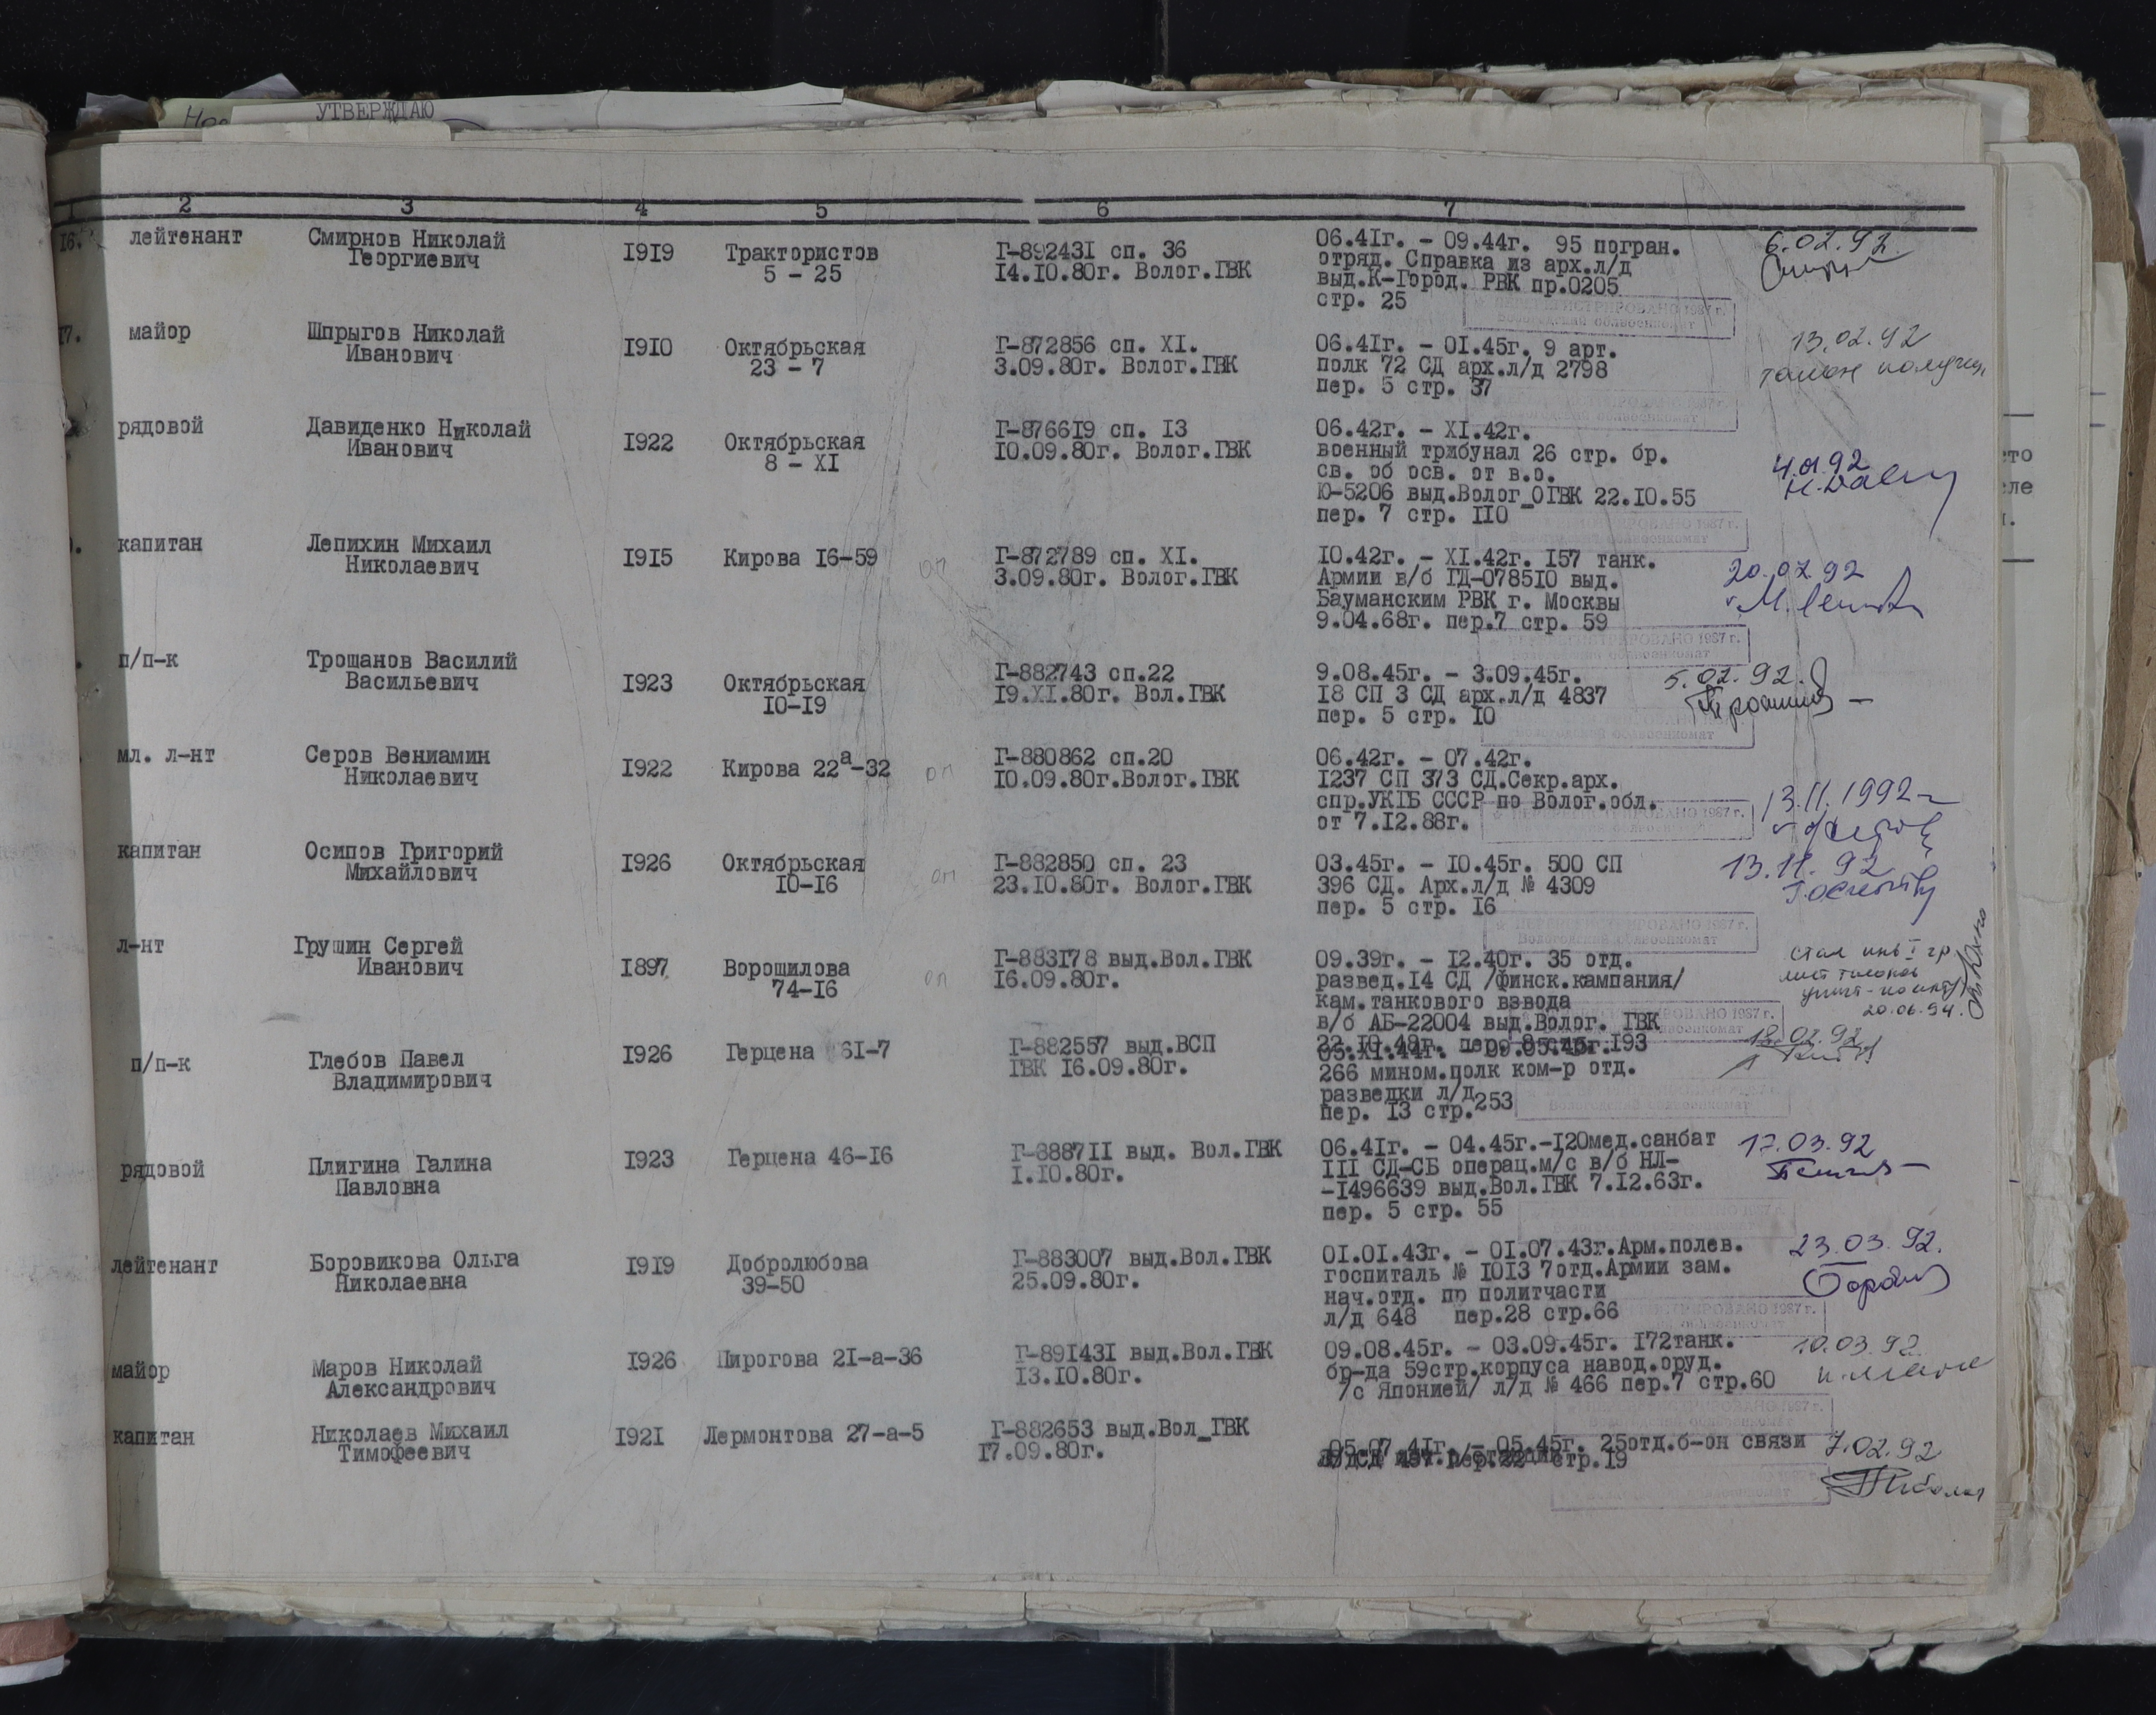 УТВЕРЖДАЮ
2 3 4 5 6 7
16. лейтенант Смирнов Николай Георгиевич 1919 Трактористов 5 - 25
Г-892431 сп. 36
14.10.80г. Волог.ГВК
06.41г. - 09.44г. 95 погран.
отряд. Справка из арх.л/д
выд.К-Город. РВК пр.0205
стр. 25
6.02.92
17. майор Шпрыгов Николай Иванович 1910 Октябрьская 23 - 7
Г-872856 сп. XI.
3.09.80г. Волог.ГВК
06.41г. - 01.45г. 9 арт.
полк 72 СД арх.л/д 2798
пер. 5 стр. 37
13.02.92
талон получил
рядовой Давиденко Николай Иванович 1922 Октябрьская 8 - XI
Г-876619 сп. 13
10.09.80г. Волог.ГВК
06.42г. - XI.42г.
военный трибунал 26 стр. бр.
св. об осв. от в.о.
Ю-5206 выд.Волог_ОГВК 22.10.55
пер. 7 стр. 110
капитан Лепихин Михаил Николаевич 1915 Кирова 16-59 оп
Г-872789 сп. XI.
3.09.80г. Волог.ГВК
10.42г. - XI.42г. 157 танк.
Армии в/б ГД-078510 выд.
Бауманским РВК г. Москвы
9.04.68г. пер.7 стр. 59
20.02.92
п/п-к Трошанов Василий Васильевич 1923 Октябрьская 10-19
Г-882743 сп.22
19.XI.80г. Вол.ГВК
9.08.45г. - 3.09.45г.
18 СП 3 СД арх.л/д 4837
пер. 5 стр. 10
5.02.92.
мл. л-нт Серов Вениамин Николаевич 1922 Кирова 22а-32 оп
Г-880862 сп.20
10.09.80г.Волог.ГВК
06.42г. - 07.42г.
1237 СП 373 СД.Секр.арх.
спр.УКГБ СССР по Волог.обл.
от 7.12.88г.
ПЕРЕРЕГИСТРИРОВАНО 1987 г.
13.11.1992
капитан Осипов Григорий Михайлович 1926 Октябрьская 10-16 оп
Г-882850 сп. 23
23.10.80г. Волог.ГВК
03.45г. - 10.45г. 500 СП
396 СД. Арх.л/д № 4309
пер. 5 стр. 16
ПЕРЕРЕГИСТРИРОВАНО 1987 г.
Вологодский облвоенкомат
13.11.92
л-нт Грушин Сергей Иванович 1897 Ворошилова 74-16 оп
Г-883178 выд.Вол.ГВК
16.09.80г.
09.39г. - 12.40г. 35 отд.
развед.14 СД /финск.кампания/
кам.танкового взвода
в/б АБ-22004 выд.Волог. ГВК
22.10.48г. пер. 8 стр. 193
стал инв I гр
лист талонов
20.06.94.
п/п-к Глебов Павел Владимирович 1926 Герцена 61-7
Г-882557 выд.ВСП
ГВК 16.09.80г.
05.XI.44г. - 09.05.45г.
266 мином.полк ком-р отд.
разведки л/д
пер. 13 стр.253
18.02.92
рядовой Плигина Галина Павловна 1923 Герцена 46-16
Г-888711 выд. Вол.ГВК
1.10.80г.
06.41г. - 04.45г.-120мед.санбат
III СД-СБ операц.м/с в/б НЛ-
-1496639 выд.Вол.ГВК 7.12.63г.
пер. 5 стр. 55
17.03.92
лейтенант Боровикова Ольга Николаевна 1919 Добролюбова 39-50
Г-883007 выд.Вол.ГВК
25.09.80г.
01.01.43г. - 01.07.43г.Арм.полев.
госпиталь № 1013 7отд.Армии зам.
нач.отд. по политчасти
л/д 648 пер.28 стр.66
23.03.92.
майор Маров Николай Александрович 1926 Пирогова 21-а-36
Г-891431 выд.Вол.ГВК
13.10.80г.
09.08.45г. - 03.09.45г. 172танк.
бр-да 59стр.корпуса навод.оруд.
/с Японией/ л/д № 466 пер.7 стр.60
10.03.92.
капитан Николаев Михаил Тимофеевич 1921 Лермонтова 27-а-5
Г-882653 выд.Вол_ГВК
17.09.80г.
05.07.41г. - 05.45г. 25отд.б-он связи
стр.19
7.02.92